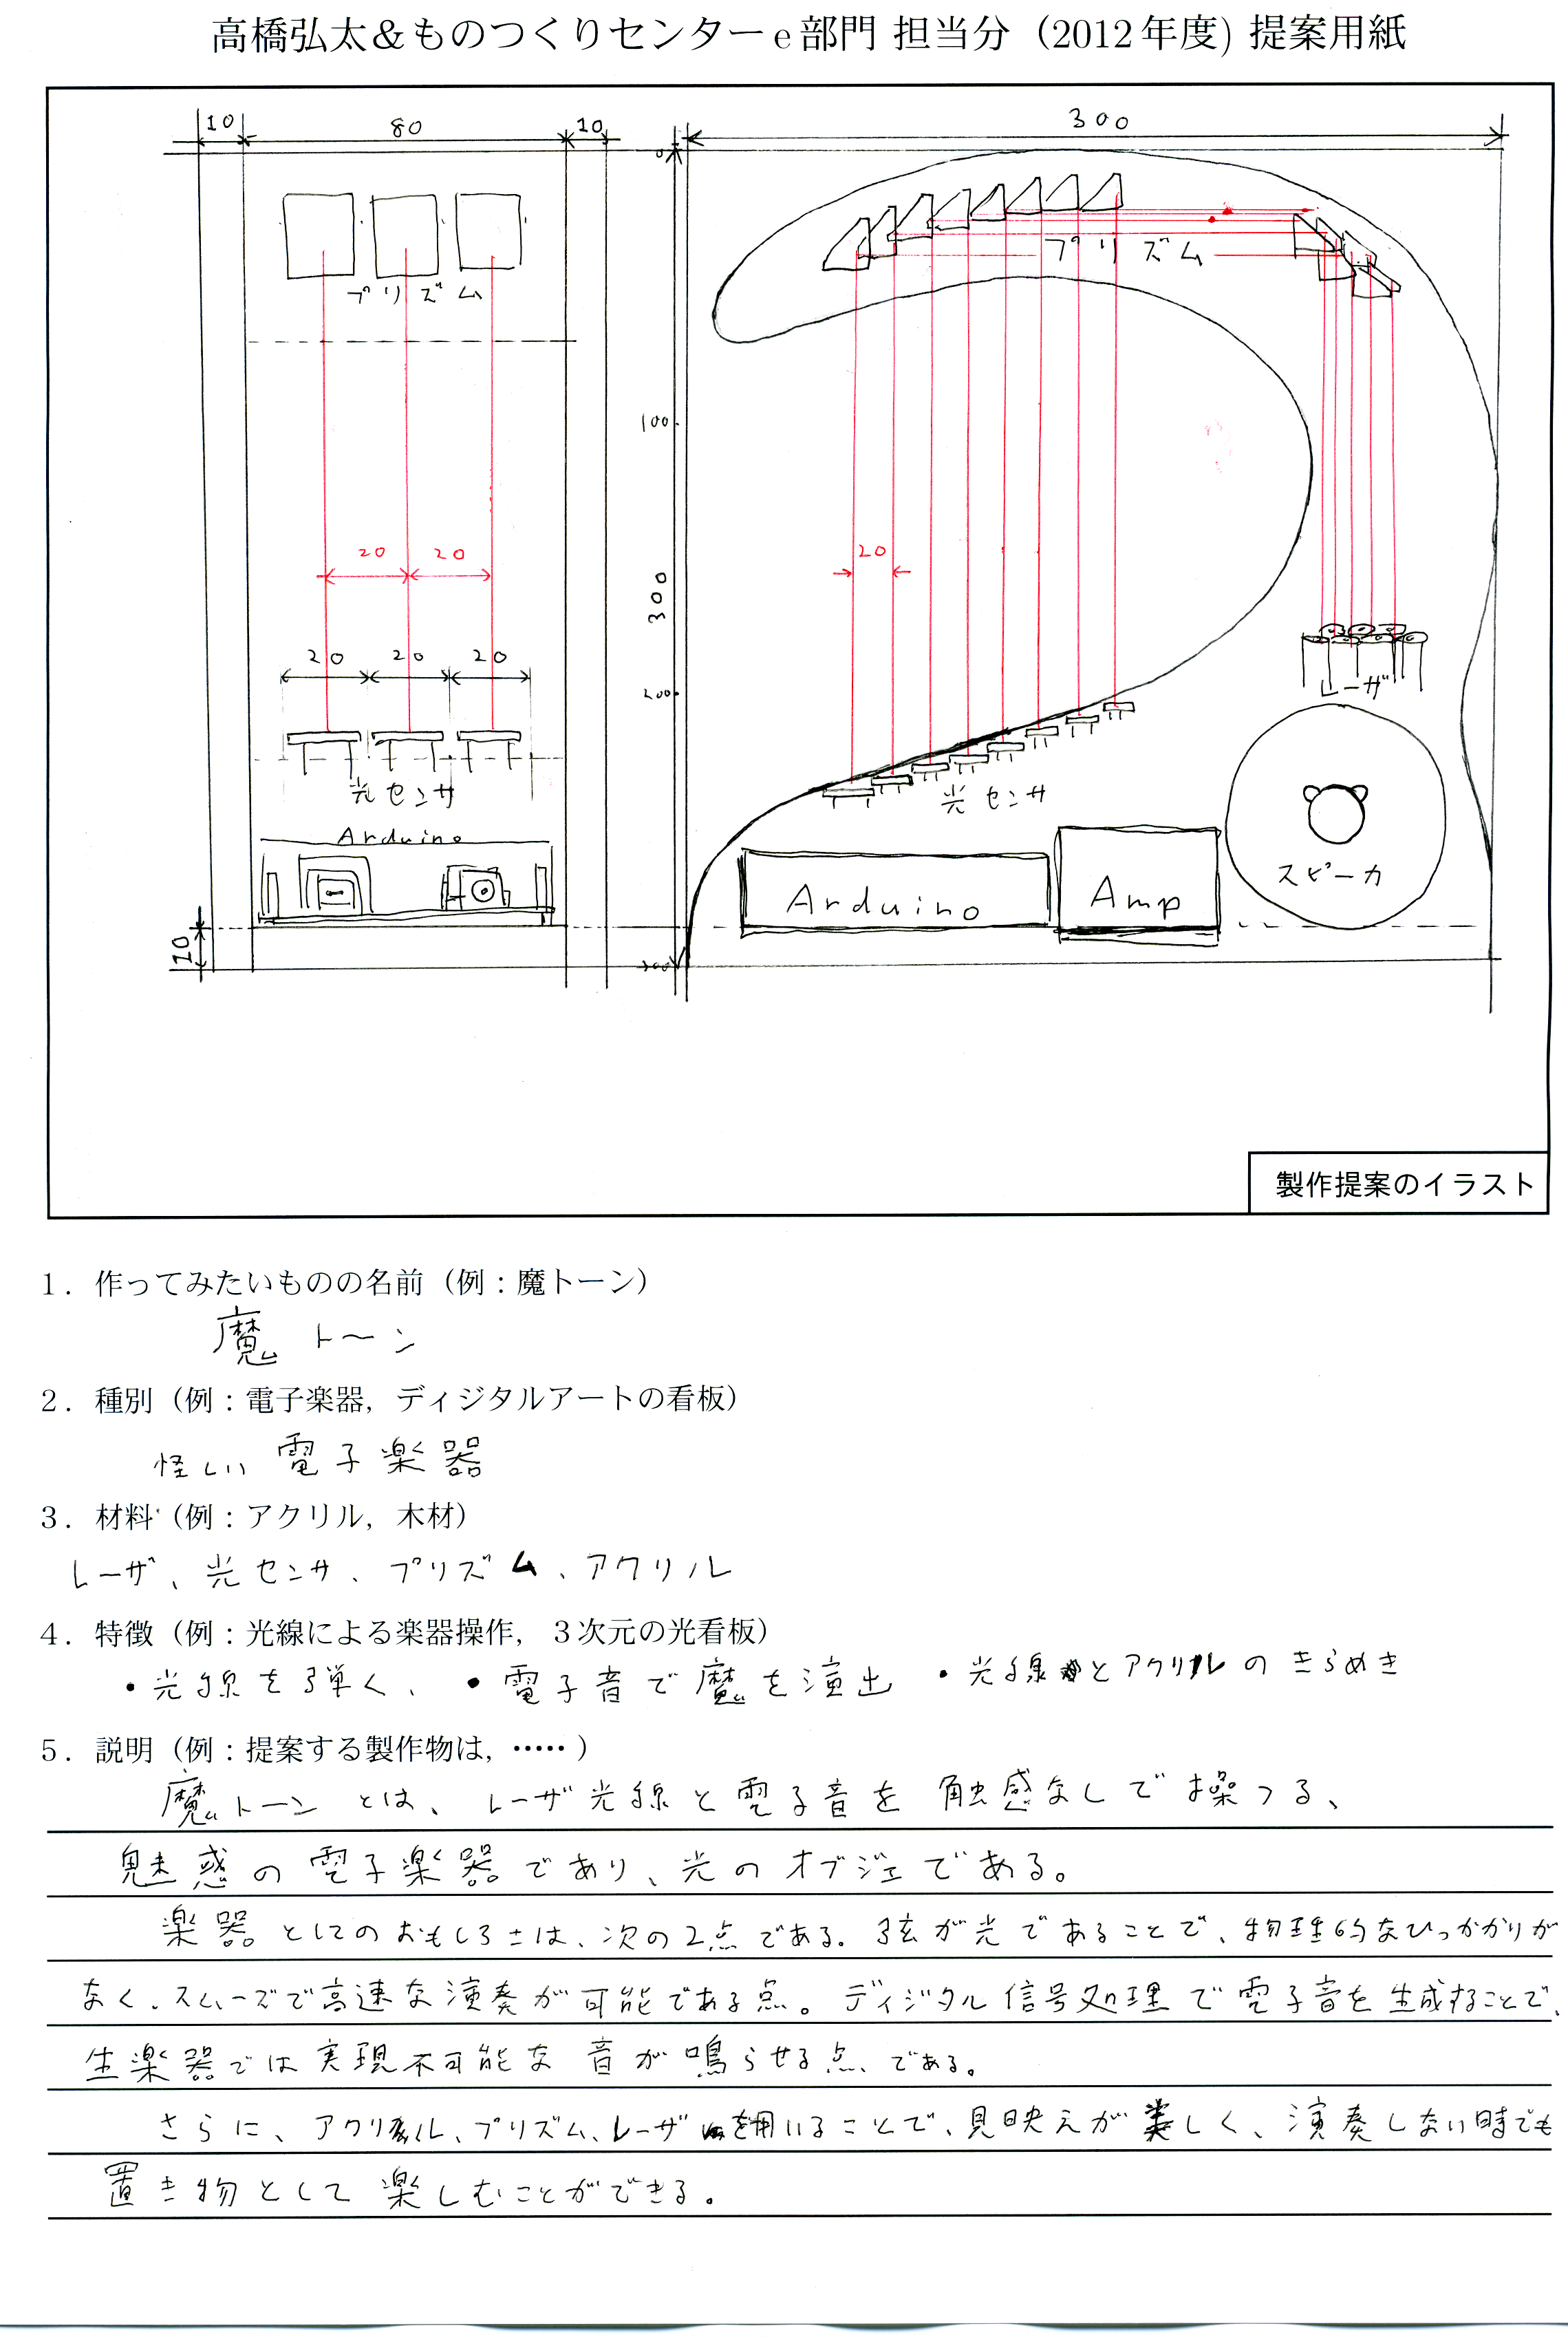 高橋弘太＆ものつくりセンターe部門 担当分（2012年度）提案用紙
10 80 10
300
プリズム
プリズム
0
100
20 20
20
300
20 20 20
200
レーザ
光センサ
光センサ
Arduino
Arduino
Amp
スピーカ
10
300
製作提案のイラスト
1．作ってみたいものの名前（例：魔トーン）
魔トーン
2．種別（例：電子楽器，ディジタルアートの看板）
怪しい電子楽器
3．材料（例：アクリル，木材）
レーザ、光センサ、プリズム、アクリル
4．特徴（例：光線による楽器操作，3次元の光看板）
・光線を弾く、・電子音で魔を演出 ・光線とアクリルのきらめき
5．説明（例：提案する製作物は，‥‥‥）
魔トーンとは、レーザ光線と電子音を触感なしで操つる、
魅惑の電子楽器であり、光のオブジェである。
楽器としてのおもしろさは、次の2点である。弦が光であることで、物理的なひっかかりが
なく、スムーズで高速な演奏が可能である点。ディジタル信号処理で電子音を生成することで、
生楽器では実現不可能な音が鳴らせる点、である。
さらに、アクリル、プリズム、レーザを用いることで、見映えが美しく、演奏しない時でも
置き物として楽しむことができる。